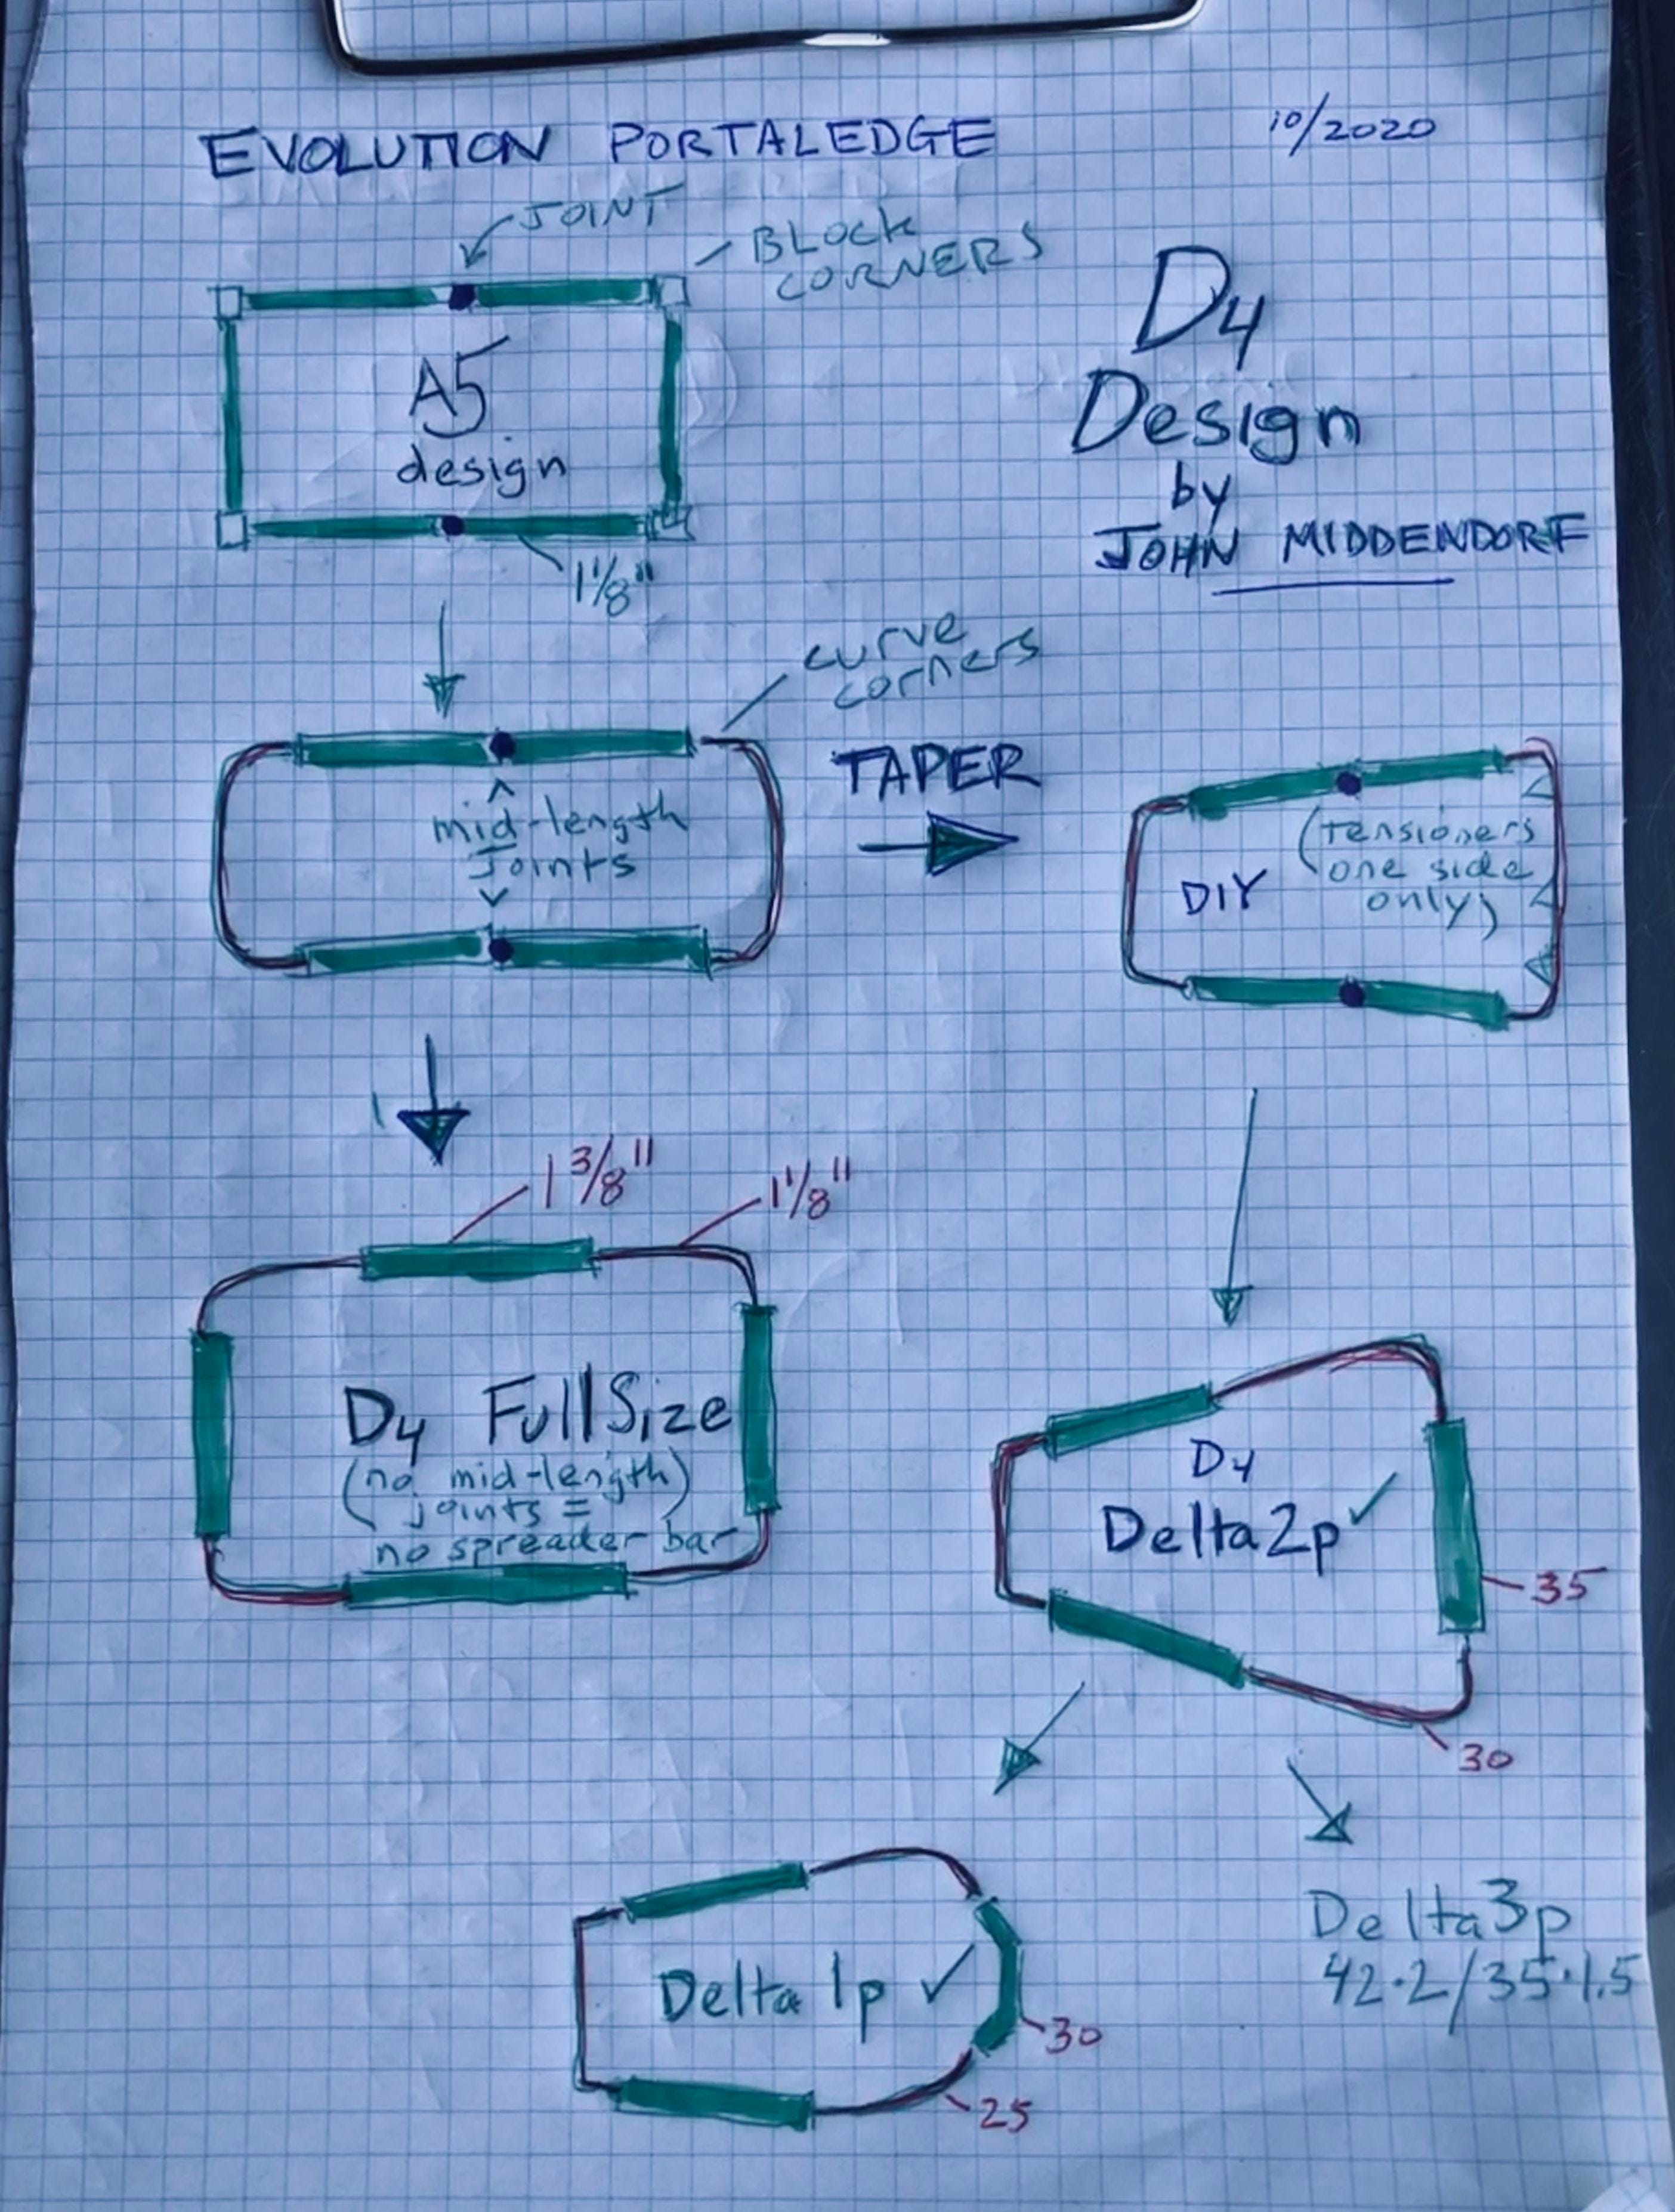 EVOLUTION PORTALEDGE
10/2020
JOINT
BLOCK
CORNERS
A5
design
1 1/8"
D4
Design
by
JOHN MIDDENDORF
curve
corners
mid-length
Joints
TAPER
(Tensioners
one side
only)
DIY
1 3/8"
1 1/8"
D4 FullSize
(no mid-length)
joints =
no spreader bar
D4
Delta2p ✓
35
30
Delta 1p ✓
30
25
Delta3p
42·2/35·1.5